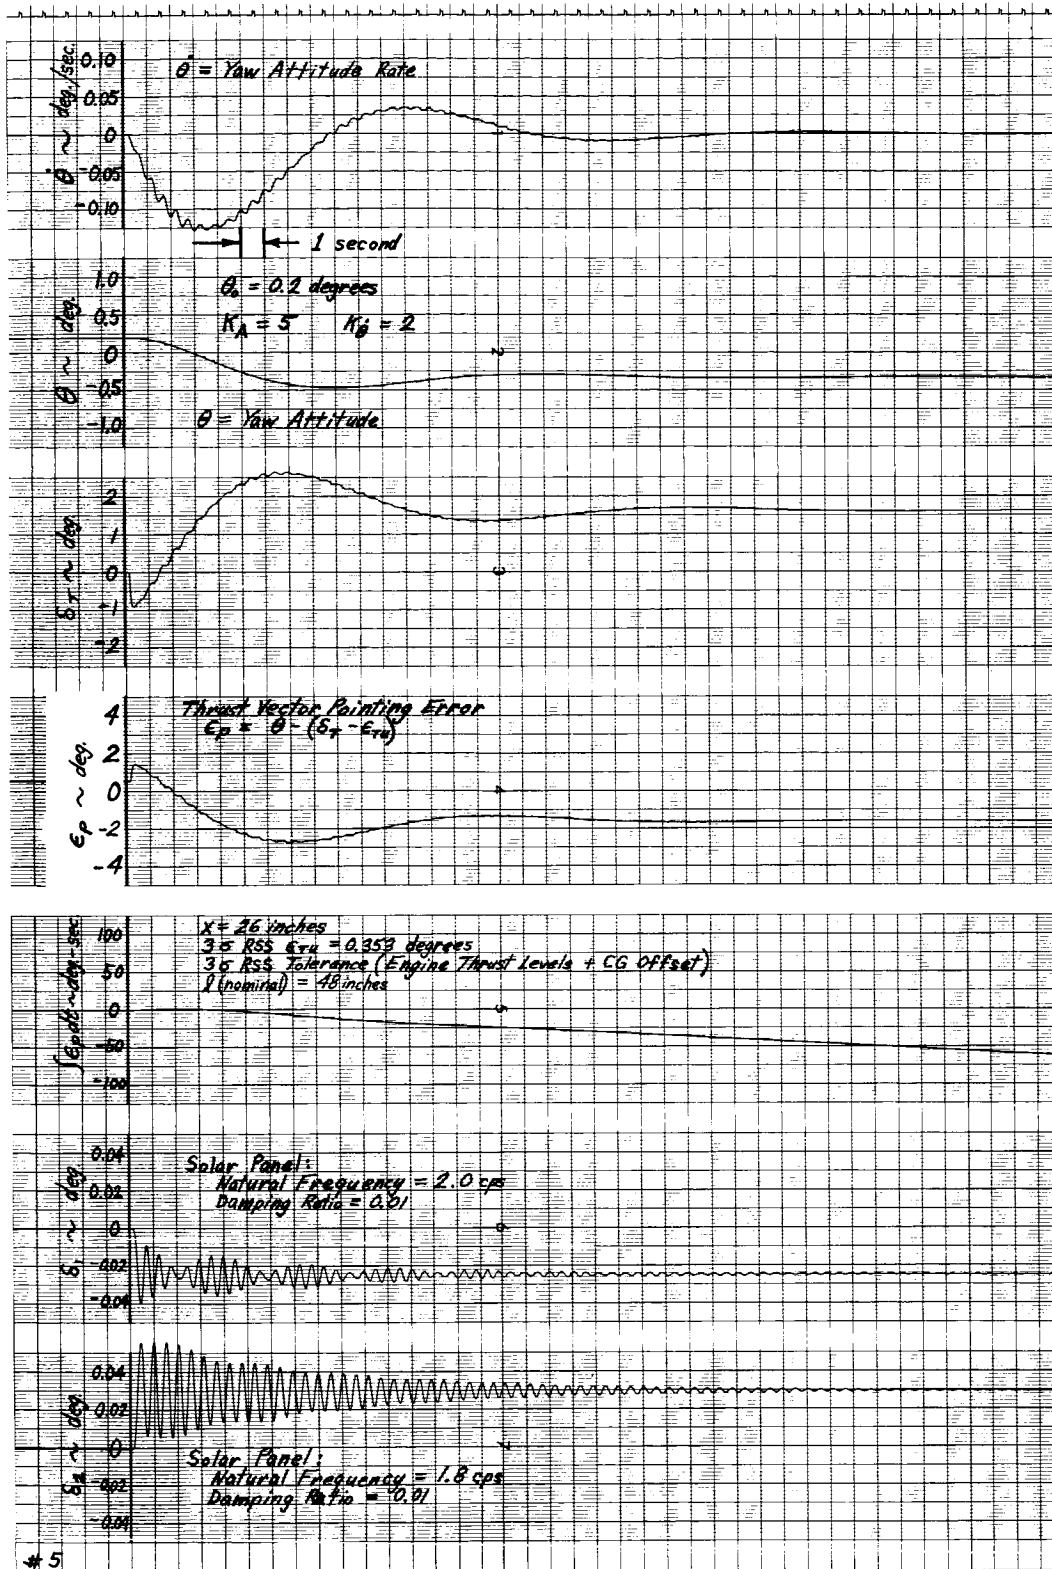 θ̇ ~ deg./sec.
0.10
0.05
0
-0.05
-0.10
θ̇ = Yaw Attitude Rate
1
1 second
θ ~ deg.
1.0
0.5
0
-0.5
-1.0
θ₀ = 0.2 degrees
K_A = 5 K_θ̇ = 2
2
θ = Yaw Attitude
δ_T ~ deg.
2
1
0
-1
-2
3
ϵ_p ~ deg.
4
2
0
-2
-4
Thrust Vector Pointing Error
ϵ_p = θ - (δ_T - ϵ_Tu)
4
∫ϵ_p dt ~ deg-sec.
100
50
0
-50
-100
X = 26 inches
3 σ RSS ϵ_Tu = 0.353 degrees
3 σ RSS Tolerance (Engine Thrust Levels + CG Offset)
l (nominal) = 48 inches
5
δ₁ ~ deg
0.04
0.02
0
-0.02
-0.04
Solar Panel:
Natural Frequency = 2.0 cps
Damping Ratio = 0.01
6
δ₂ ~ deg.
0.04
0.02
0
-0.02
-0.04
Solar Panel:
Natural Frequency = 1.8 cps
Damping Ratio = 0.01
7
# 5